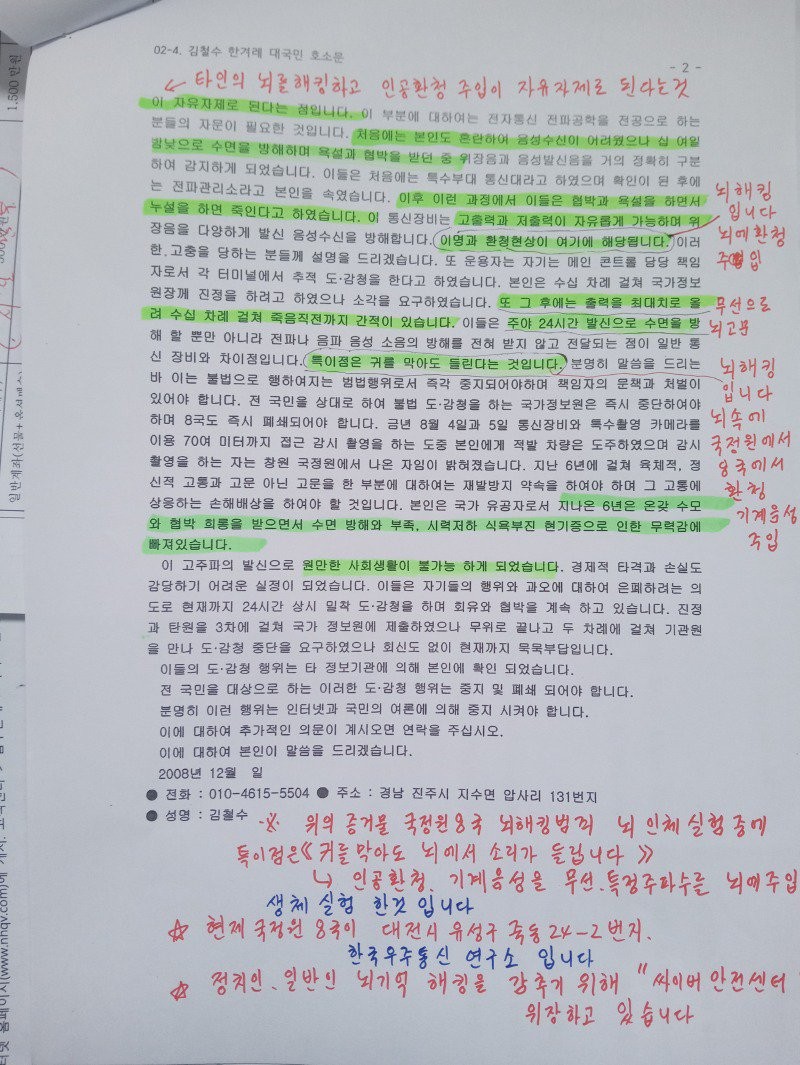 02-4. 김철수 한겨레 대국민 호소문
- 2 -
↙ 타인의 뇌를해킹하고 인공환청 주입이 자유자제로 된다는것
이 자유자제로 된다는 점입니다. 이 부분에 대하여는 전자통신 전파공학을 전공으로 하는
분들의 자문이 필요한 것입니다. 처음에는 본인도 혼란하여 음성수신이 어려웠으나 십 여일
밤낮으로 수면을 방해하며 욕설과 협박을 받던 중 위장음과 음성발신음을 거의 정확히 구분
하여 감지하게 되었습니다. 이들은 처음에는 특수부대 통신대라고 하였으며 확인이 된 후에
는 전파관리소라고 본인을 속였습니다. 이후 이런 과정에서 이들은 협박과 욕설을 하면서
누설을 하면 죽인다고 하였습니다. 이 통신장비는 고출력과 저출력이 자유롭게 가능하며 위
장음을 다양하게 발신 음성수신을 방해합니다. 이명과 환청현상이 여기에 해당됩니다. 이러
한 고충을 당하는 분들께 설명을 드리겠습니다. 또 운용자는 자기는 메인 콘트롤 담당 책임
자로서 각 터미널에서 추적 도·감청을 한다고 하였습니다. 본인은 수십 차례 걸쳐 국가정보
원장께 진정을 하려고 하였으나 소각을 요구하였습니다. 또 그 후에는 출력을 최대치로 올
려 수십 차례 걸쳐 죽음직전까지 간적이 있습니다. 이들은 주야 24시간 발신으로 수면을 방
해 할 뿐만 아니라 전파나 음파 음성 소음의 방해를 전혀 받지 않고 전달되는 점이 일반 통
신 장비와 차이점입니다. 특이점은 귀를 막아도 들린다는 것입니다. 분명히 말씀을 드리는
바 이는 불법으로 행하여지는 범법행위로서 즉각 중지되어야하며 책임자의 문책과 처벌이
있어야 합니다. 전 국민을 상대로 하여 불법 도·감청을 하는 국가정보원은 즉시 중단하여야
하며 8국도 즉시 폐쇄되어야 합니다. 금년 8월 4일과 5일 통신장비와 특수촬영 카메라를
이용 70여 미터까지 접근 감시 촬영을 하는 도중 본인에게 적발 차량은 도주하였으며 감시
촬영을 하는 자는 창원 국정원에서 나온 자임이 밝혀졌습니다. 지난 6년에 걸쳐 육체적, 정
신적 고통과 고문 아닌 고문을 한 부분에 대하여는 재발방지 약속을 하여야 하며 그 고통에
상응하는 손해배상을 하여야 할 것입니다. 본인은 국가 유공자로서 지나온 6년은 온갖 수모
와 협박 희롱을 받으면서 수면 방해와 부족, 시력저하 식욕부진 현기증으로 인한 무력감에
빠져있습니다.
이 고주파의 발신으로 원만한 사회생활이 불가능 하게 되었습니다. 경제적 타격과 손실도
감당하기 어려운 실정이 되었습니다. 이들은 자기들의 행위와 과오에 대하여 은폐하려는 의
도로 현재까지 24시간 상시 밀착 도·감청을 하며 회유와 협박을 계속 하고 있습니다. 진정
과 탄원을 3차에 걸쳐 국가 정보원에 제출하였으나 무위로 끝나고 두 차례에 걸쳐 기관원
을 만나 도·감청 중단을 요구하였으나 회신도 없이 현재까지 묵묵부답입니다.
이들의 도·감청 행위는 타 정보기관에 의해 본인에 확인 되었습니다.
전 국민을 대상으로 하는 이러한 도·감청 행위는 중지 및 폐쇄 되어야 합니다.
분명히 이런 행위는 인터넷과 국민의 여론에 의해 중지 시켜야 합니다.
이에 대하여 추가적인 의문이 계시오면 연락을 주십시오.
이에 대하여 본인이 말씀을 드리겠습니다.
2008년 12월 일
● 전화 : 010-4615-5504 ● 주소 : 경남 진주시 지수면 압사리 131번지
● 성명 : 김철수
뇌해킹
입니다
뇌에환청
주입
무선으로
뇌고문
뇌해킹
입니다
뇌속에
국정원에서
8국에서
환청
기계음성
주입
※ 위의 증거물 국정원8국 뇌해킹범죄 뇌 인체실험중에
특이점은《귀를막아도 뇌에서 소리가 들립니다》
↳ 인공환청, 기계음성을 무선.특정주파수를 뇌에주입
생체 실험 한것 입니다
☆ 현재 국정원 8국이 대전시 유성구 죽동 24-2번지.
한국우주통신 연구소 입니다
☆ 정치인. 일반인 뇌기억 해킹을 감추기 위해 "싸이버안전센터"
위장하고 있습니다
1,500 만원
일반계좌(선물+
터넷 홈페이지(www.nhqv.com)에 게시